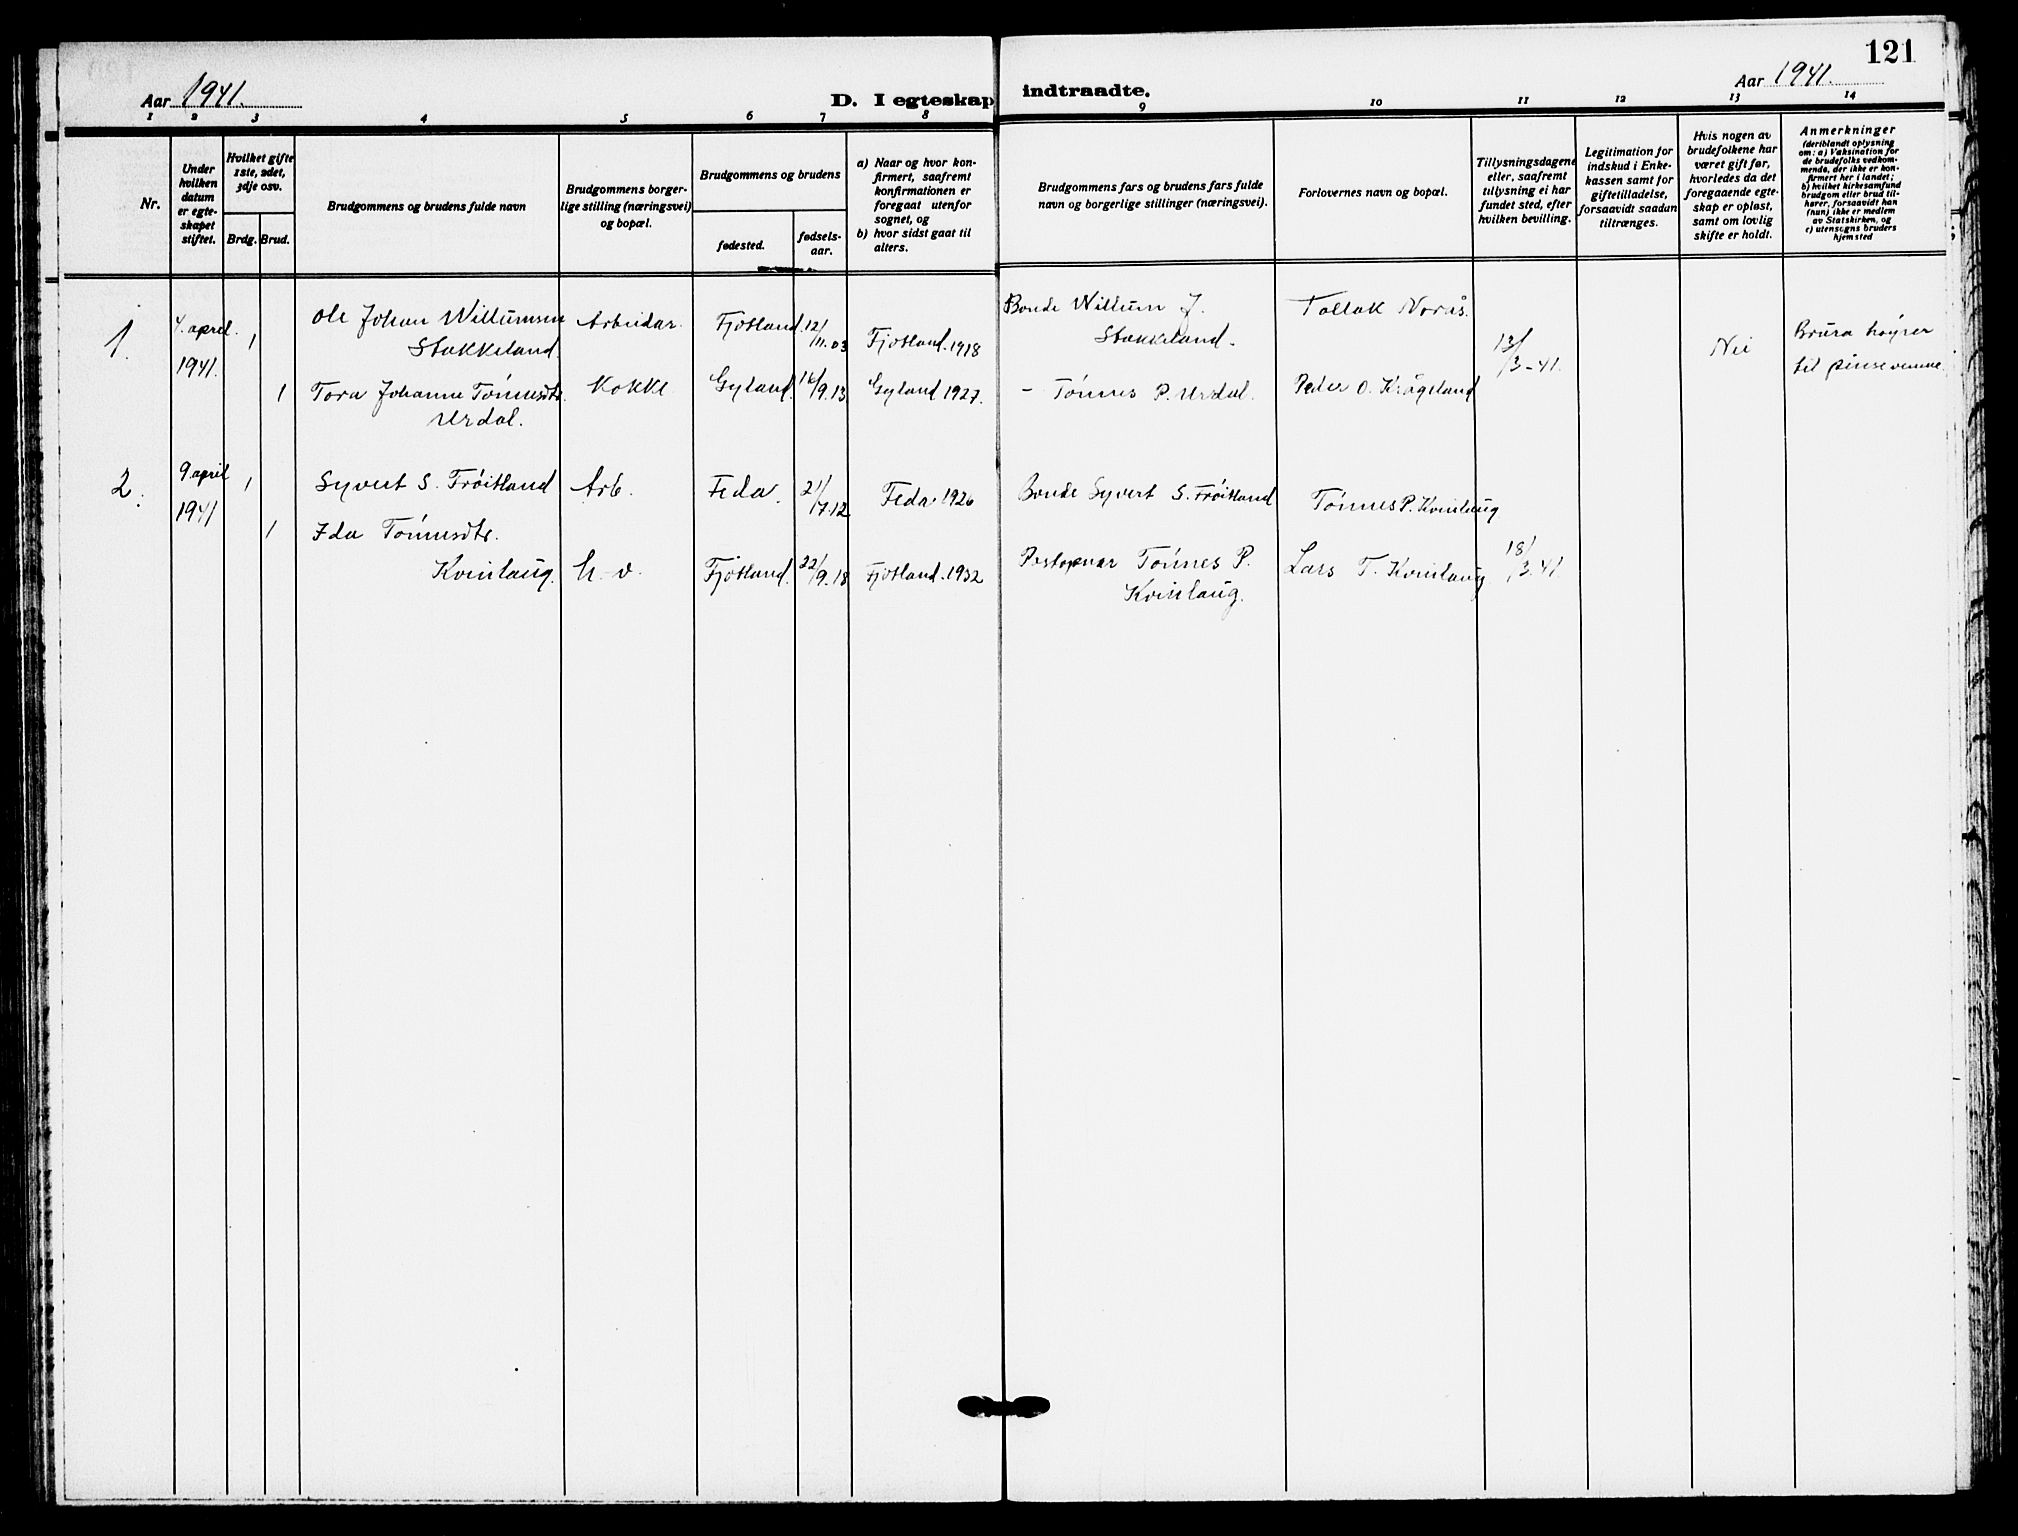 121
Aar 1941.
D. I egteskap indtraadte.
Aar 1941.
1 2 3 4 5 6 7 8 9 10 11 12 13 14
Nr.
Under
hvilken
datum
er egte-
skapet
stiftet.
Hvilket gifte
1ste, 2det,
3dje osv.
Brdg. Brud.
Brudgommens og brudens fulde navn
Brudgommens borger-
lige stilling (næringsvei)
og bopæl.
Brudgommens og brudens
fødested.
fødsels-
aar.
a) Naar og hvor kon-
firmert, saafremt
konfirmationen er
foregaat utenfor
sognet, og
b) hvor sidst gaat til
alters.
Brudgommens fars og brudens fars fulde
navn og borgerlige stillinger (næringsvei).
Forlovernes navn og bopæl.
Tillysningsdagene
eller, saafremt
tillysning ei har
fundet sted, efter
hvilken bevilling.
Legitimation for
indskud i Enke-
kassen samt for
giftetilladelse,
forsaavidt saadan
tiltrænges.
Hvis nogen av
brudefolkene har
været gift før,
hvorledes da det
foregaaende egte-
skap er opløst,
samt om lovlig
skifte er holdt.
Anmerkninger
(deriblandt oplysning
om: a) Vaksination for
de brudefolks vedkom-
mende, der ikke er kon-
firmert her i landet;
b) hvilket kirkesamfund
brudgom eller brud til-
hører, forsaavidt han
(hun) ikke er medlem
av Statskirken, og
c) utensogns bruders
hjemsted
1. 4. april 1941. 1 Ole Johan Willumsen
Stakkeland. Arbeidar. Fjotland. 12/11.03 Fjotland. 1918 Bonde Willum J.
Stakkeland. Tollak Norås. 13/3-41. Nei Brura høyrer
til pinsevenne.
1 Tora Johanne Tønnesdtr.
Urdal. Kokke. Gyland. 16/9.13 Gyland 1927. - Tønnes P. Urdal. Peder O. Krågeland
2. 9. april 1941 1 Syvert S. Frøitland Arb. Feda. 21/7.12 Feda. 1926 Bonde Syvert S. Frøitland Tønnes P. Kvinlaug
1 Ida Tønnesdtr.
Kvinlaug. h-v. Fjotland. 22/9.18 Fjotland. 1932 Postopnar Tønnes P.
Kvinlaug. Lars T. Kvinlaug 18/3.41.